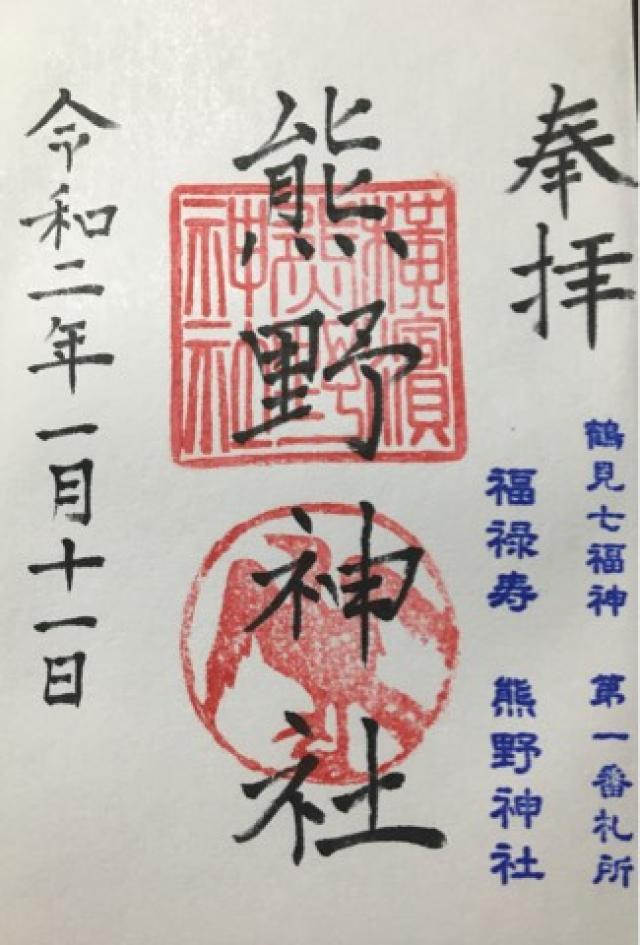 奉拝
鶴見七福神 第一番札所
福禄寿 熊野神社
熊野神社
横濱
熊野
神社
令和二年一月十一日